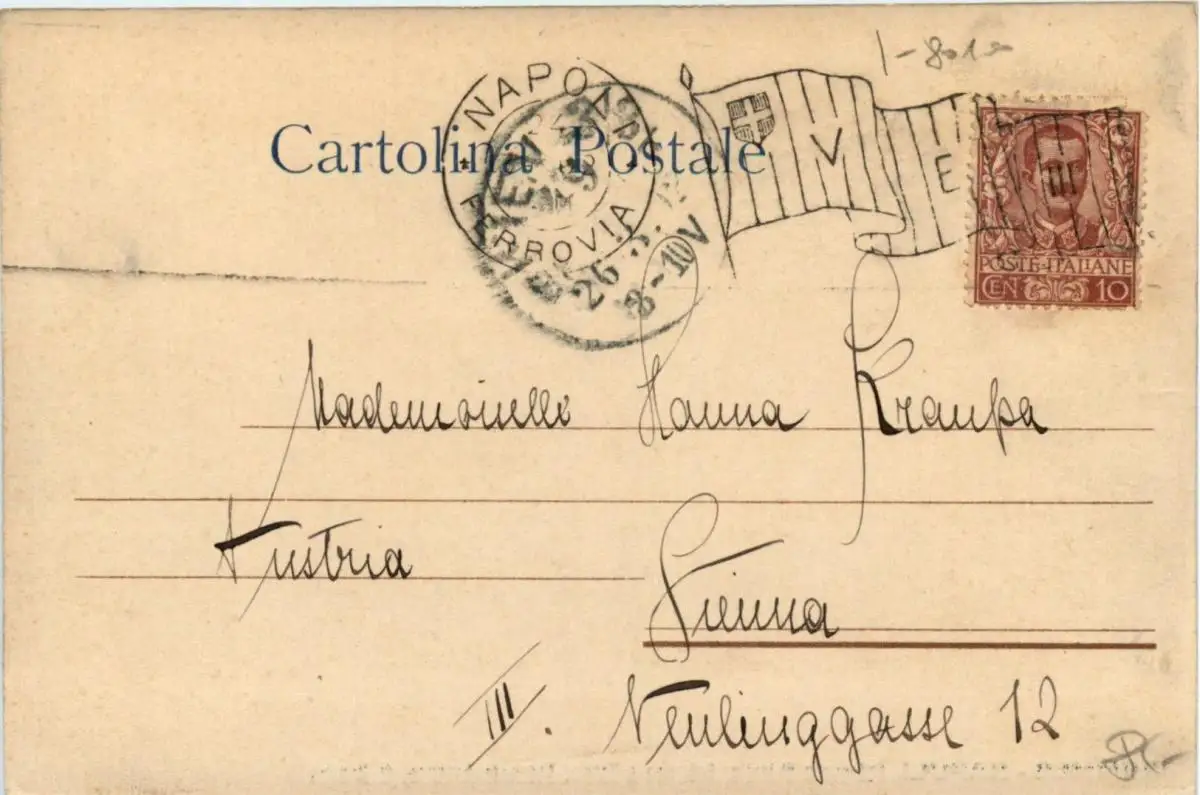 1-80
Cartolina Postale
NAPOLI
FERROVIA
26. 3.
8-10V
V E III
POSTE·ITALIANE
CEN 10
Mademoiselle Hanna Kraupa
Austria
Vienna
III. Neulinggasse 12